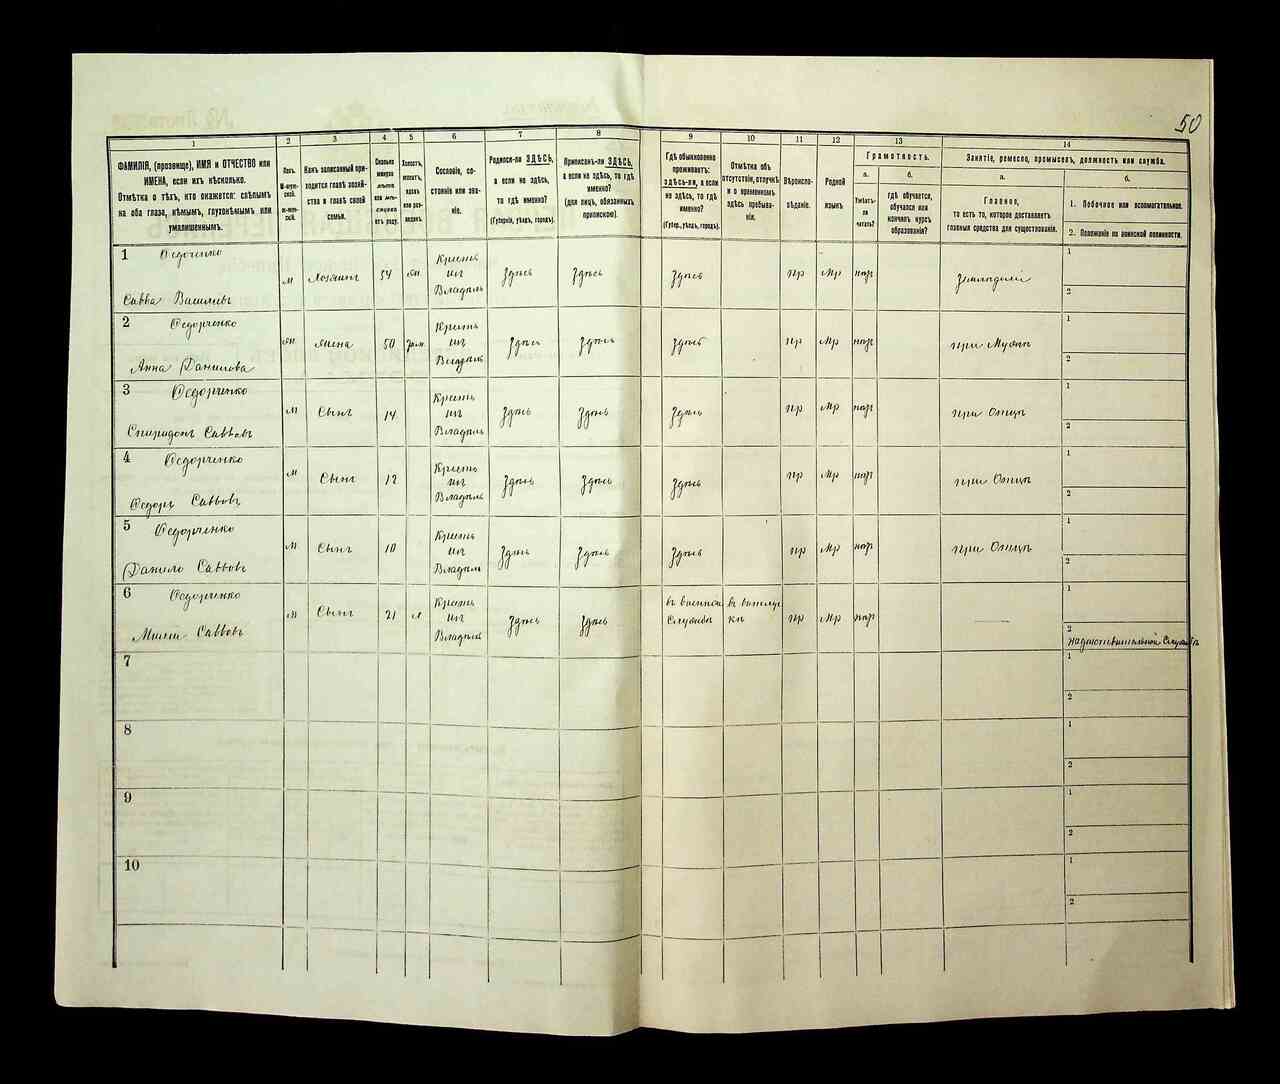 50
1
2
3
4
5
6
7
8
9
10
11
12
13
14
ФАМИЛІЯ, (прозвище), ИМЯ и ОТЧЕСТВО или
ИМЕНА, если ихъ нѣсколько.
Отмѣтка о тѣхъ, кто окажется: слѣпымъ
на оба глаза, нѣмымъ, глухонѣмымъ или
умалишеннымъ.
Полъ.
М-мужской.
Ж-женскій.
Какъ записанный приходится главѣ хозяйства и главѣ своей
семьи.
Сколько
минуло
лѣтъ
или мѣсяцевъ
отъ роду.
Холостъ,
женатъ,
вдовъ
или разведенъ.
Сословіе, состояніе или званіе.
Родился-ли ЗДѢСЬ,
а если не здѣсь,
то гдѣ именно?
(Губернія, уѣздъ, городъ).
Приписанъ-ли ЗДѢСЬ,
а если не здѣсь, то гдѣ
именно?
(для лицъ, обязанныхъ
припискою).
Гдѣ обыкновенно
проживаетъ:
здѣсь-ли, а если
не здѣсь, то гдѣ
именно?
(Губер., уѣздъ, городъ).
Отмѣтка объ
отсутствіи, отлучкѣ
и о временномъ
здѣсь пребываніи.
Вѣроисповѣданіе.
Родной
языкъ.
Грамотность.
а.
Умѣетъ-ли
читать?
б.
гдѣ обучается,
обучался или
кончилъ курсъ
образованія?
Занятіе, ремесло, промыселъ, должность или служба.
а.
Главное,
то есть то, которое доставляетъ
главныя средства для существованія.
б.
1. Побочное или вспомогательное.
2. Положеніе по воинской повинности.
1 Ѳедорченко
Савва Васильевъ
м Хозяинъ 54 жн Крестьянинъ Владѣль здѣсь здѣсь здѣсь пр Мр нѣтъ Земледѣліе
1
2
2 Ѳедорченко
Анна Данилова
жн жена 50 зам Крестьян Владѣль здѣсь здѣсь здѣсь пр Мр нѣтъ при Мужѣ
1
2
3 Ѳедорченко
Спиридонъ Саввовъ
м Сынъ 14 Крестьян Владѣль здѣсь здѣсь здѣсь пр Мр нѣтъ при Отцѣ
1
2
4 Ѳедорченко
Ѳедоръ Саввовъ
м Сынъ 12 Крестьян Владѣль здѣсь здѣсь здѣсь пр Мр нѣтъ при Отцѣ
1
2
5 Ѳедорченко
Данило Саввовъ
м Сынъ 10 Крестьян Владѣль здѣсь здѣсь здѣсь пр Мр нѣтъ при Отцѣ
1
2
6 Ѳедорченко
Саввовъ
м Сынъ 21 Крестьян Владѣль здѣсь здѣсь въ военной Службѣ въ отлучкѣ пр Мр
1
2
на дѣйствительной Службѣ
7
1
2
8
1
2
9
1
2
10
1
2